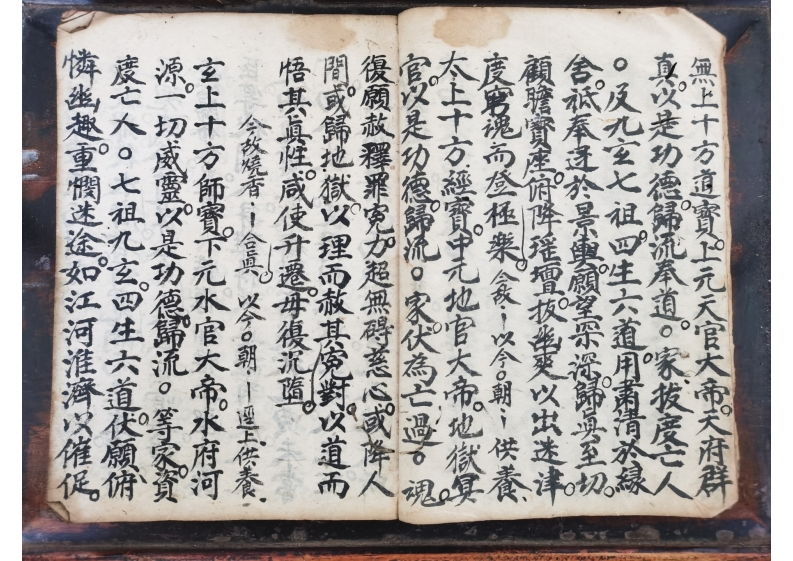 無上十方道寶。上元天官大帝。天府群
真。以是功德歸流奉道。家拔度亡人
○及九玄七祖四生六道。用肅清於緣
舍。祗奉迓於景輿。願望宗深。歸真至切。
願瞻寶座。俯降瑤壇。拔幽爽以出迷津。
度窮魂而登極樂。今故ㄧ以今○朝ㄧ供養
太上十方經寶。中元地官大帝。地獄冥
官。以是功德歸流。○家伏為亡過○魂。
復願赦釋罪冤。力超無碍慈心。或降人
間。或歸地獄。以理而赦其冤對。以道而
悟其真性。咸使升遷。毋復沉墮。
今故燒香ㄧ合真 以今○朝ㄧ逕上。供養
玄上十方師寶。下元水官大帝。水府河
源。一切威靈。以是功德歸流。○等家資
度亡人○七祖九玄。四生六道。伏願俯
憐幽趣。重憫迷途。如江河淮濟以催促。